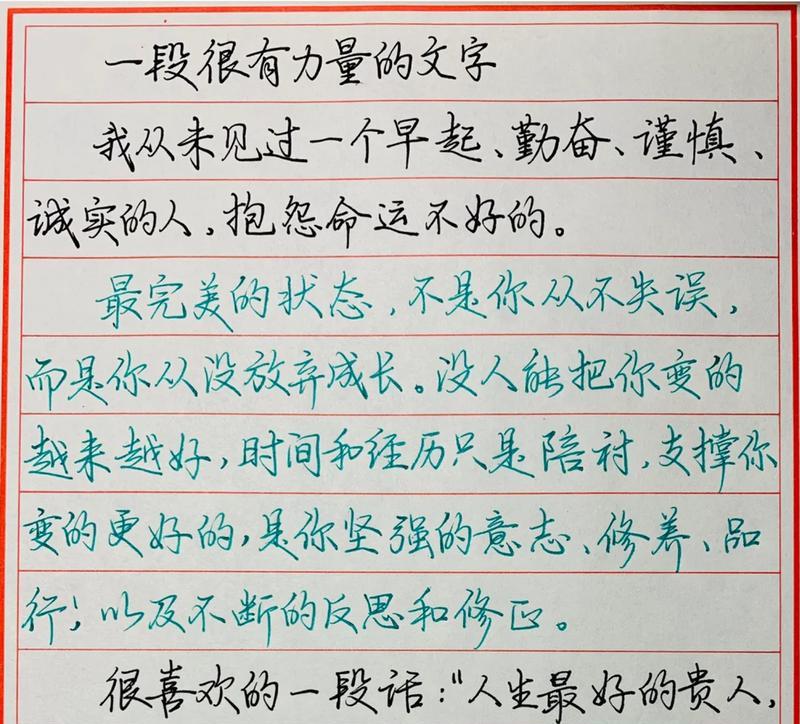 一段很有力量的文字
我从未见过一个早起、勤奋、谨慎、
诚实的人，抱怨命运不好的。
最完美的状态，不是你从不失误，
而是你从没放弃成长。没人能把你变的
越来越好，时间和经历只是陪衬，支撑你
变的更好的，是你坚强的意志、修养、品
行！以及不断的反思和修正。
很喜欢的一段话："人生最好的贵人，